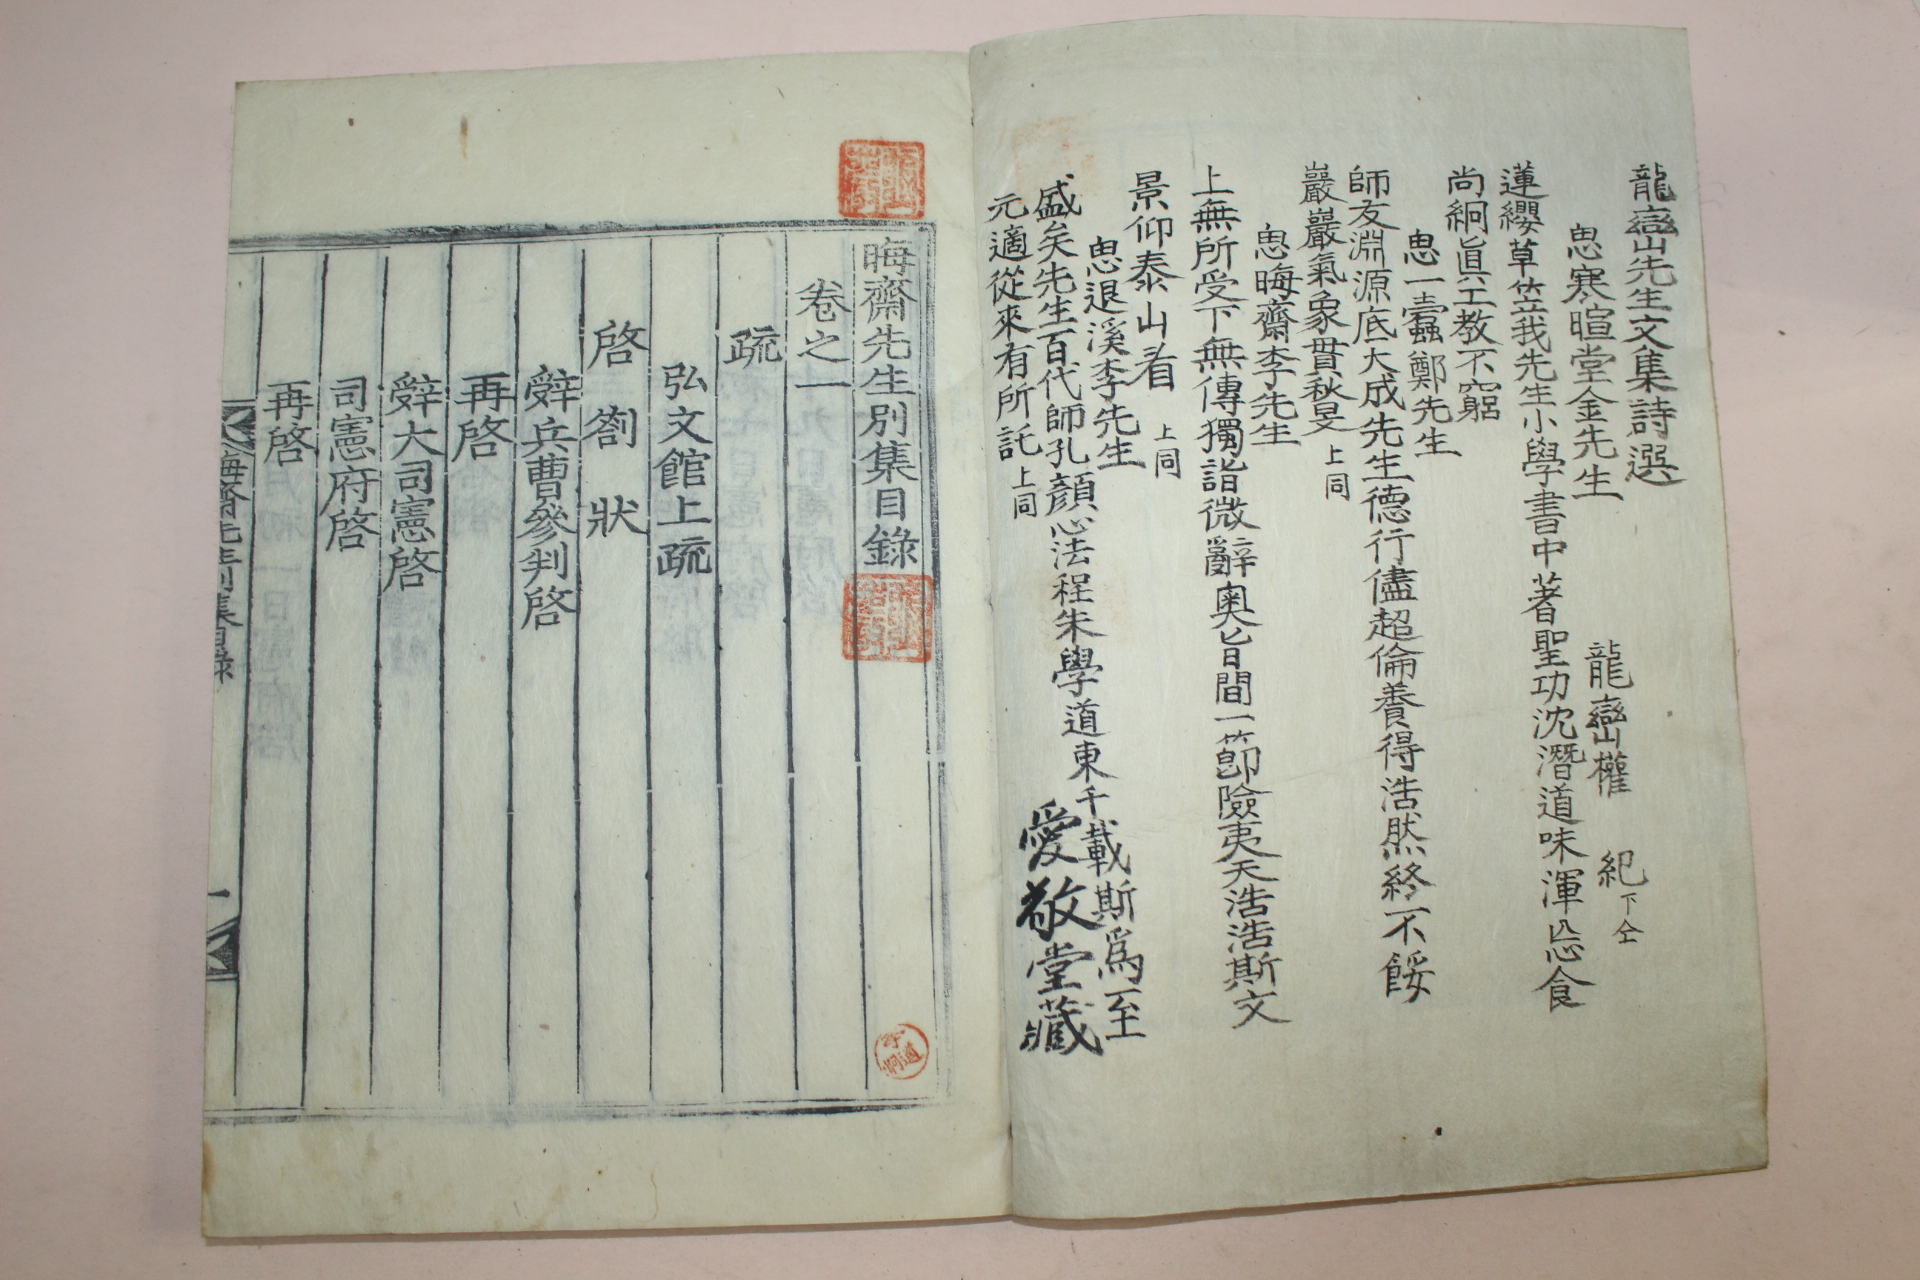 龍巒先生文集詩選
龍巒權 紀 下仝
思寒暄堂金先生
蓮纓草笠我先生小學書中著聖功沈潛道味渾忘食
尚絅眞工教不窮
思一蠹鄭先生
師友淵源底大成先生德行儘超倫養得浩然終不餒
巖巖氣象貫秋旻 上同
思晦齋李先生
上無所受下無傳獨詣微辭奧旨間一節險夷天浩浩斯文
景仰泰山看 上同
思退溪李先生
盛矣先生百代師孔顏心法程朱學道東千載斯爲至
元適從來有所託 上同
愛敬堂藏
晦齋先生別集目錄
卷之一
疏
弘文館上疏
啓 劄 狀
辭兵曹參判啓
再啓
辭大司憲啓
司憲府啓
再啓
晦齋先生別集目錄 一